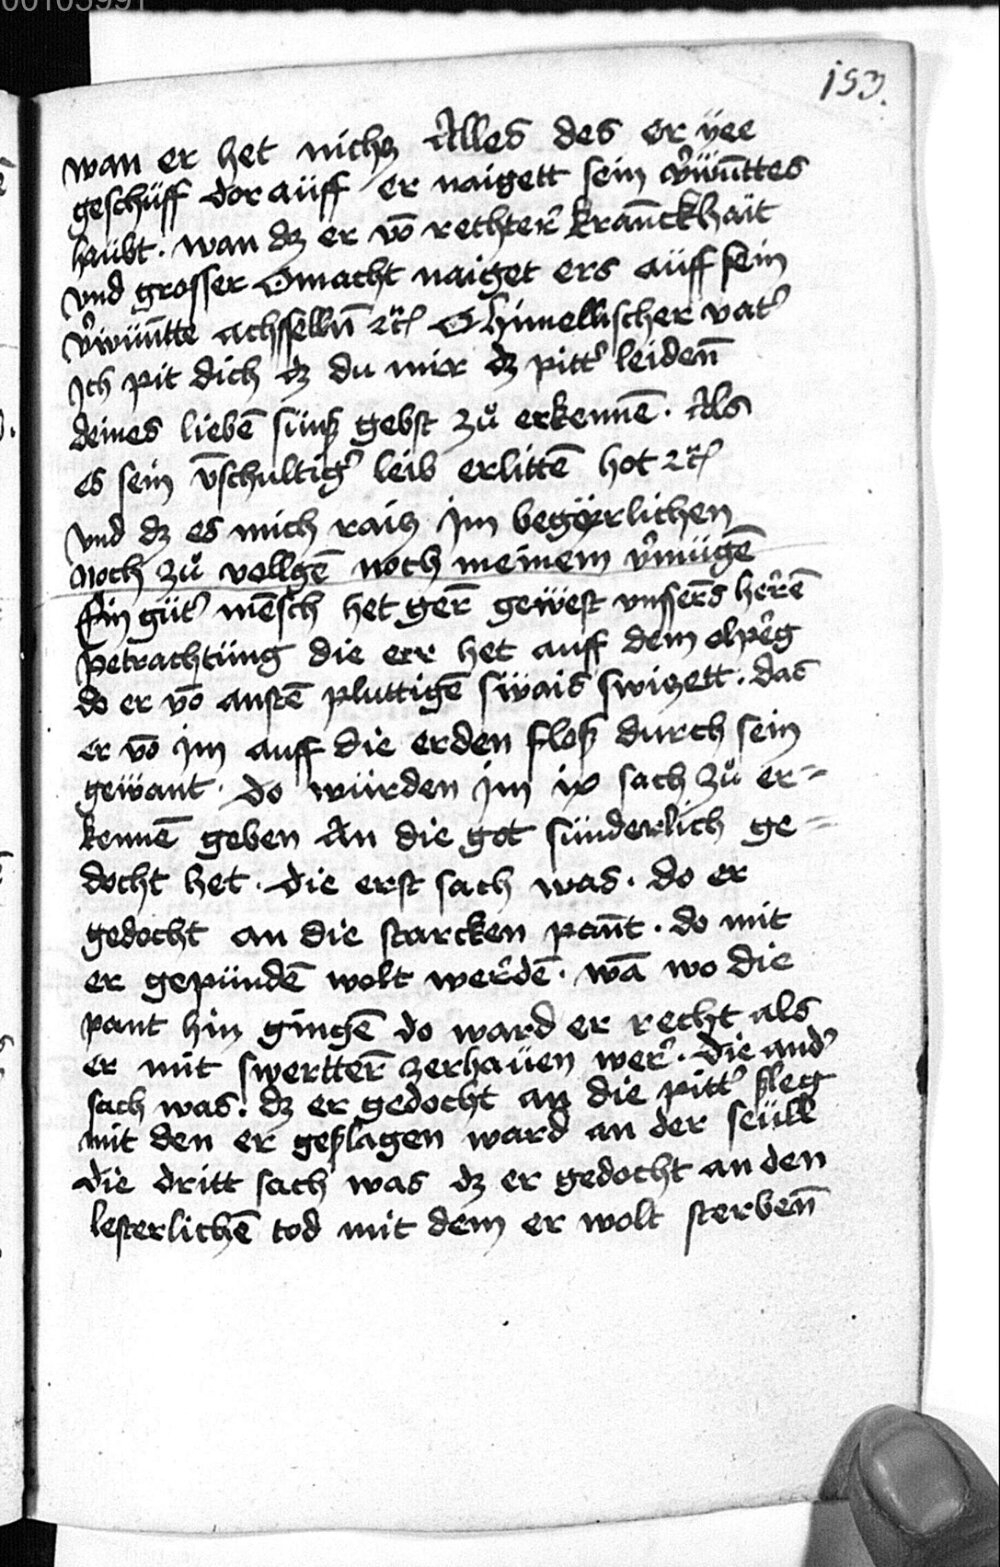 00105991
153.
wan er het nichtz Alles des er yee
geschüff dor aüff er naigett sein v̓wün̄ttes
haübt. wan dz er vō rechter̓ kran̄ckhait
vnd grosser Omacht naiget ers aüff sein
v̓wün̄tte achsselln̄ ꝛc̄ O himellischer vat̓
Ich pit dich dz du mir dz pitt̓ leiden̄
deines liebē suns gebst zů erkennē. Als
es sein v̄schultig̓ leib erlittē hot ꝛc̄
vnd dz es mich raitz im begerlichen
noch zů vollgē noch meinem v̓mügē
Ein güt̓ mēsch het ger̄ gewest vnsser̄s herrē
petrachtüng die err het auff dem olper̓g
do er vō anstē pluttigē swais switzett. das
er vō im auff die erden flosß durch sein
gewant. do würden im ix sach zů er=
kennē geben An die got sünderlich ge=
docht het. die erst sach was. do er
gedocht an die starcken pan̄t. do mit
er gepündē wolt werdē. wā wo die
pant hin gingē do ward er recht als
er mit swertter̄ zerhaüen wer̓. die and̓
sach was. dz er gedocht an die pitt̓ sleg
mit den er geslagen ward an der seüll
die dritt sach was dz er gedocht an den
lesterlichē tod mit dem er wolt sterben̄